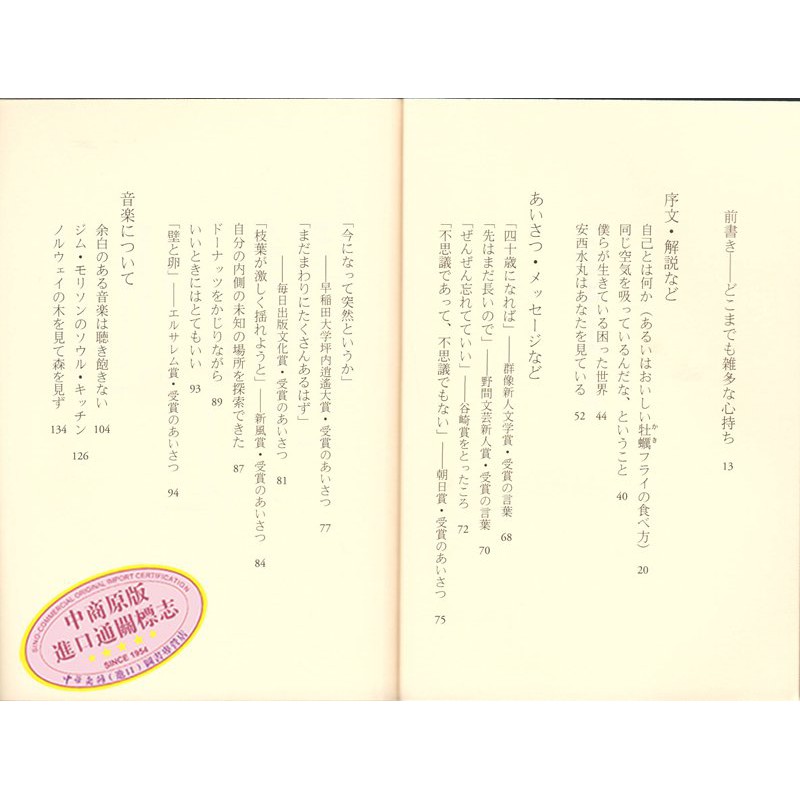 前書き——どこまでも雑多な心持ち 13
序文・解説など
自己とは何か（あるいはおいしい牡蠣フライの食べ方） 20
かき
同じ空気を吸っているんだな、ということ 40
僕らが生きている困った世界 44
安西水丸はあなたを見ている 52
あいさつ・メッセージなど
「四十歳になれば」——群像新人文学賞・受賞の言葉 68
「先はまだ長いので」——野間文芸新人賞・受賞の言葉 70
「ぜんぜん忘れてていい」——谷崎賞をとったころ 72
「不思議であって、不思議でもない」——朝日賞・受賞のあいさつ 75
「今になって突然というか」
——早稲田大学坪内逍遙大賞・受賞のあいさつ 77
「まだまわりにたくさんあるはず」
——毎日出版文化賞・受賞のあいさつ 81
「枝葉が激しく揺れようと」——新風賞・受賞のあいさつ 84
自分の内側の未知の場所を探索できた 87
ドーナッツをかじりながら 89
いいときにはとてもいい 93
「壁と卵」——エルサレム賞・受賞のあいさつ 94
音楽について
余白のある音楽は聴き飽きない 104
ジム・モリソンのソウル・キッチン 126
ノルウェイの木を見て森を見ず 134
SINO-COMMERCIAL ORIGINAL IMPORT CERTIFICATION
中商原版
進口通關標志
SINCE 1954